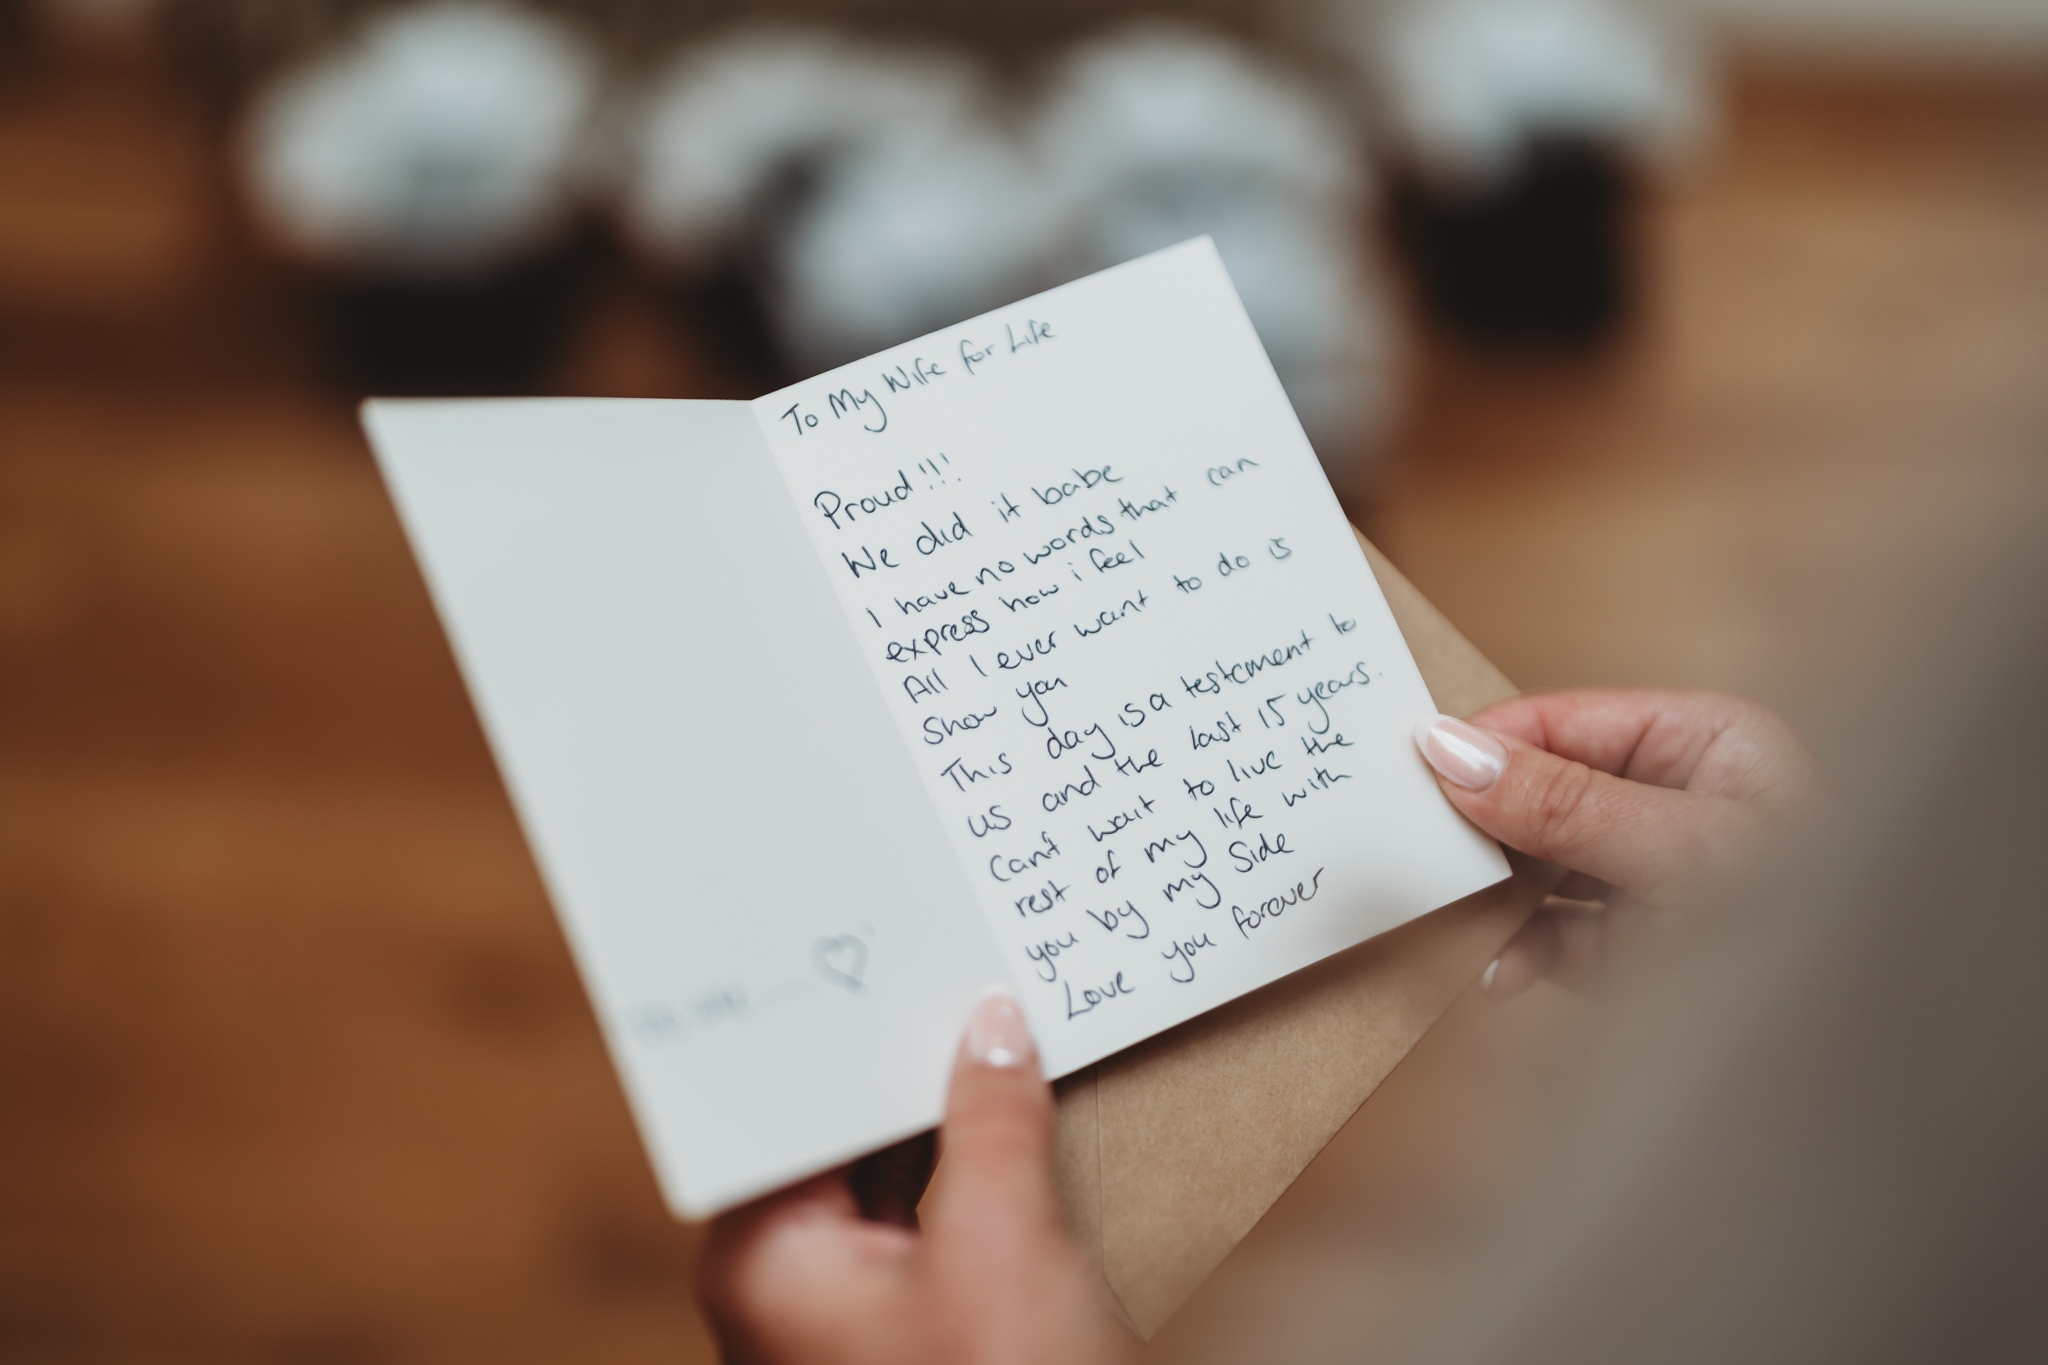 To My Wife for Life
Proud!!!
We did it babe
I have no words that can
express how i feel
All I ever want to do is
Show you
This day is a testement to
us and the last 15 years.
Can't wait to live the
rest of my life with
you by my side
Love you forever